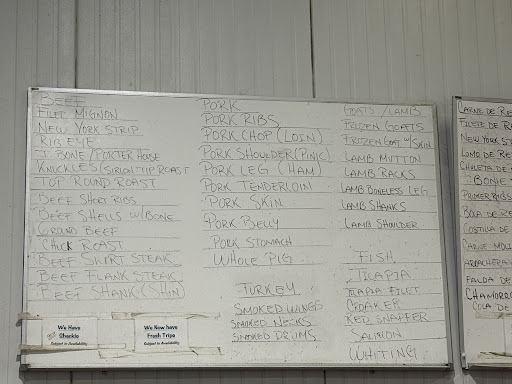 BEEF
FILET MIGNON
NEW YORK STRIP
RIB EYE
T BONE/PORTER HOUSE
KNUCKLES (SIRLOIN TIP ROAST
TOP ROUND ROAST
BEEF SHORT RIBS
BEEF SHELLS W/BONE
GROUND BEEF
CHUCK ROAST
BEEF SKIRT STEAK
BEEF FLANK STEAK
BEEF SHANK (SHIN)
We Have
Shackle
Subject to Availability
We Now have
Fresh Tripe
Subject to Availability
PORK
PORK RIBS
PORK CHOP (LOIN)
PORK SHOULDER (PINIC)
PORK LEG (HAM)
PORK TENDERLOIN
PORK SKIN
PORK BELLY
PORK STOMACH
WHOLE PIG
TURKEY
SMOKED WINGS
SMOKED NECKS
SMOKED DRUMS
GOATS/LAMB
FROZEN GOATS
FROZEN GOAT W/SKIN
LAMB MUTTON
LAMB RACKS
LAMB BONELESS LEG
LAMB SHANKS
LAMB SHOULDER
FISH
TILAPIA
TILAPIA FILET
CROAKER
RED SNAPPER
SALMON
WHITING
CARNE DE RE
FILETE DE R
NEW YORK ST
LOMO DE RE
CHULETA DE
BONIE
PRIMER RIBS
BOLA DE RE
COSTILLA DE
CARNE MOLI
ARRACHERA
FALDA DE
CHAMORRO
COLA DE